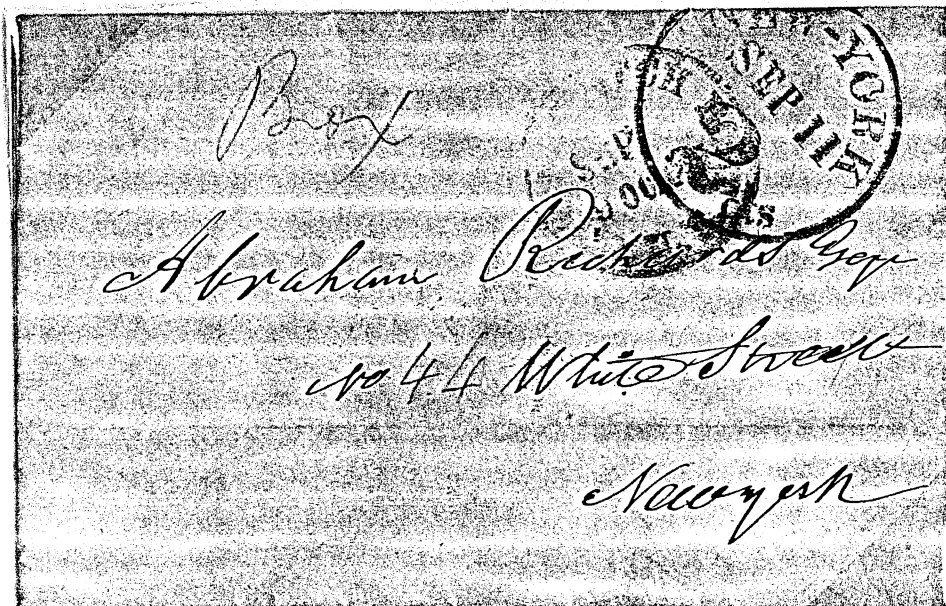 Box
NEW-YORK
SEP 11
Abraham Richards Esqr
No 44 White Street
Newyork